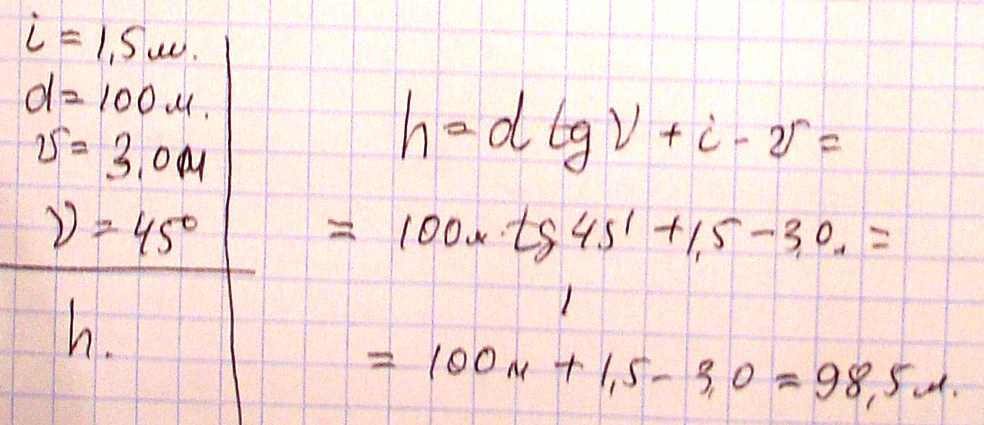 i = 1,5 м.
d = 100 м.
v = 3,0 м
ν = 45°
h.
h = d tg ν + i - v =
= 100м · tg 45' + 1,5 - 3,0м =
1
= 100м + 1,5 - 3,0 = 98,5 м.